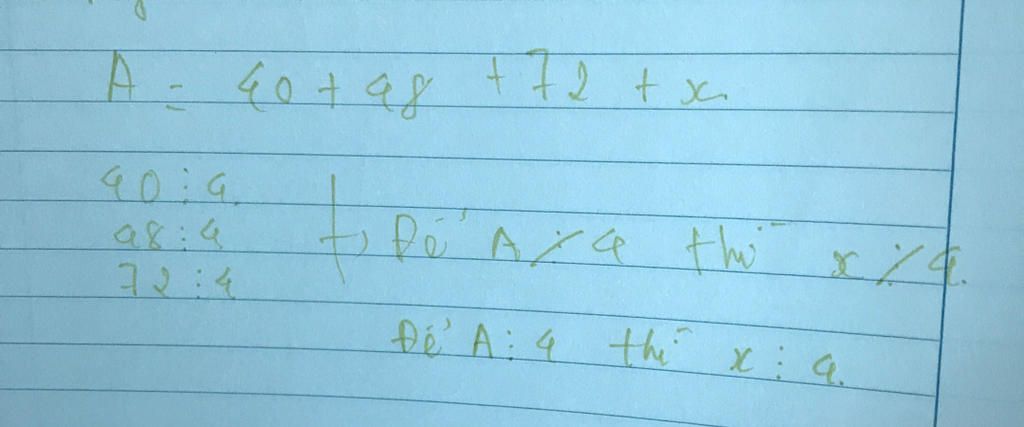 A = 40 + 48 + 72 + x
40 ⋮ 4
48 ⋮ 4 => Để A ⋮̸ 4 thì x ⋮̸ 4.
72 ⋮ 4
Để A ⋮ 4 thì x ⋮ 4.